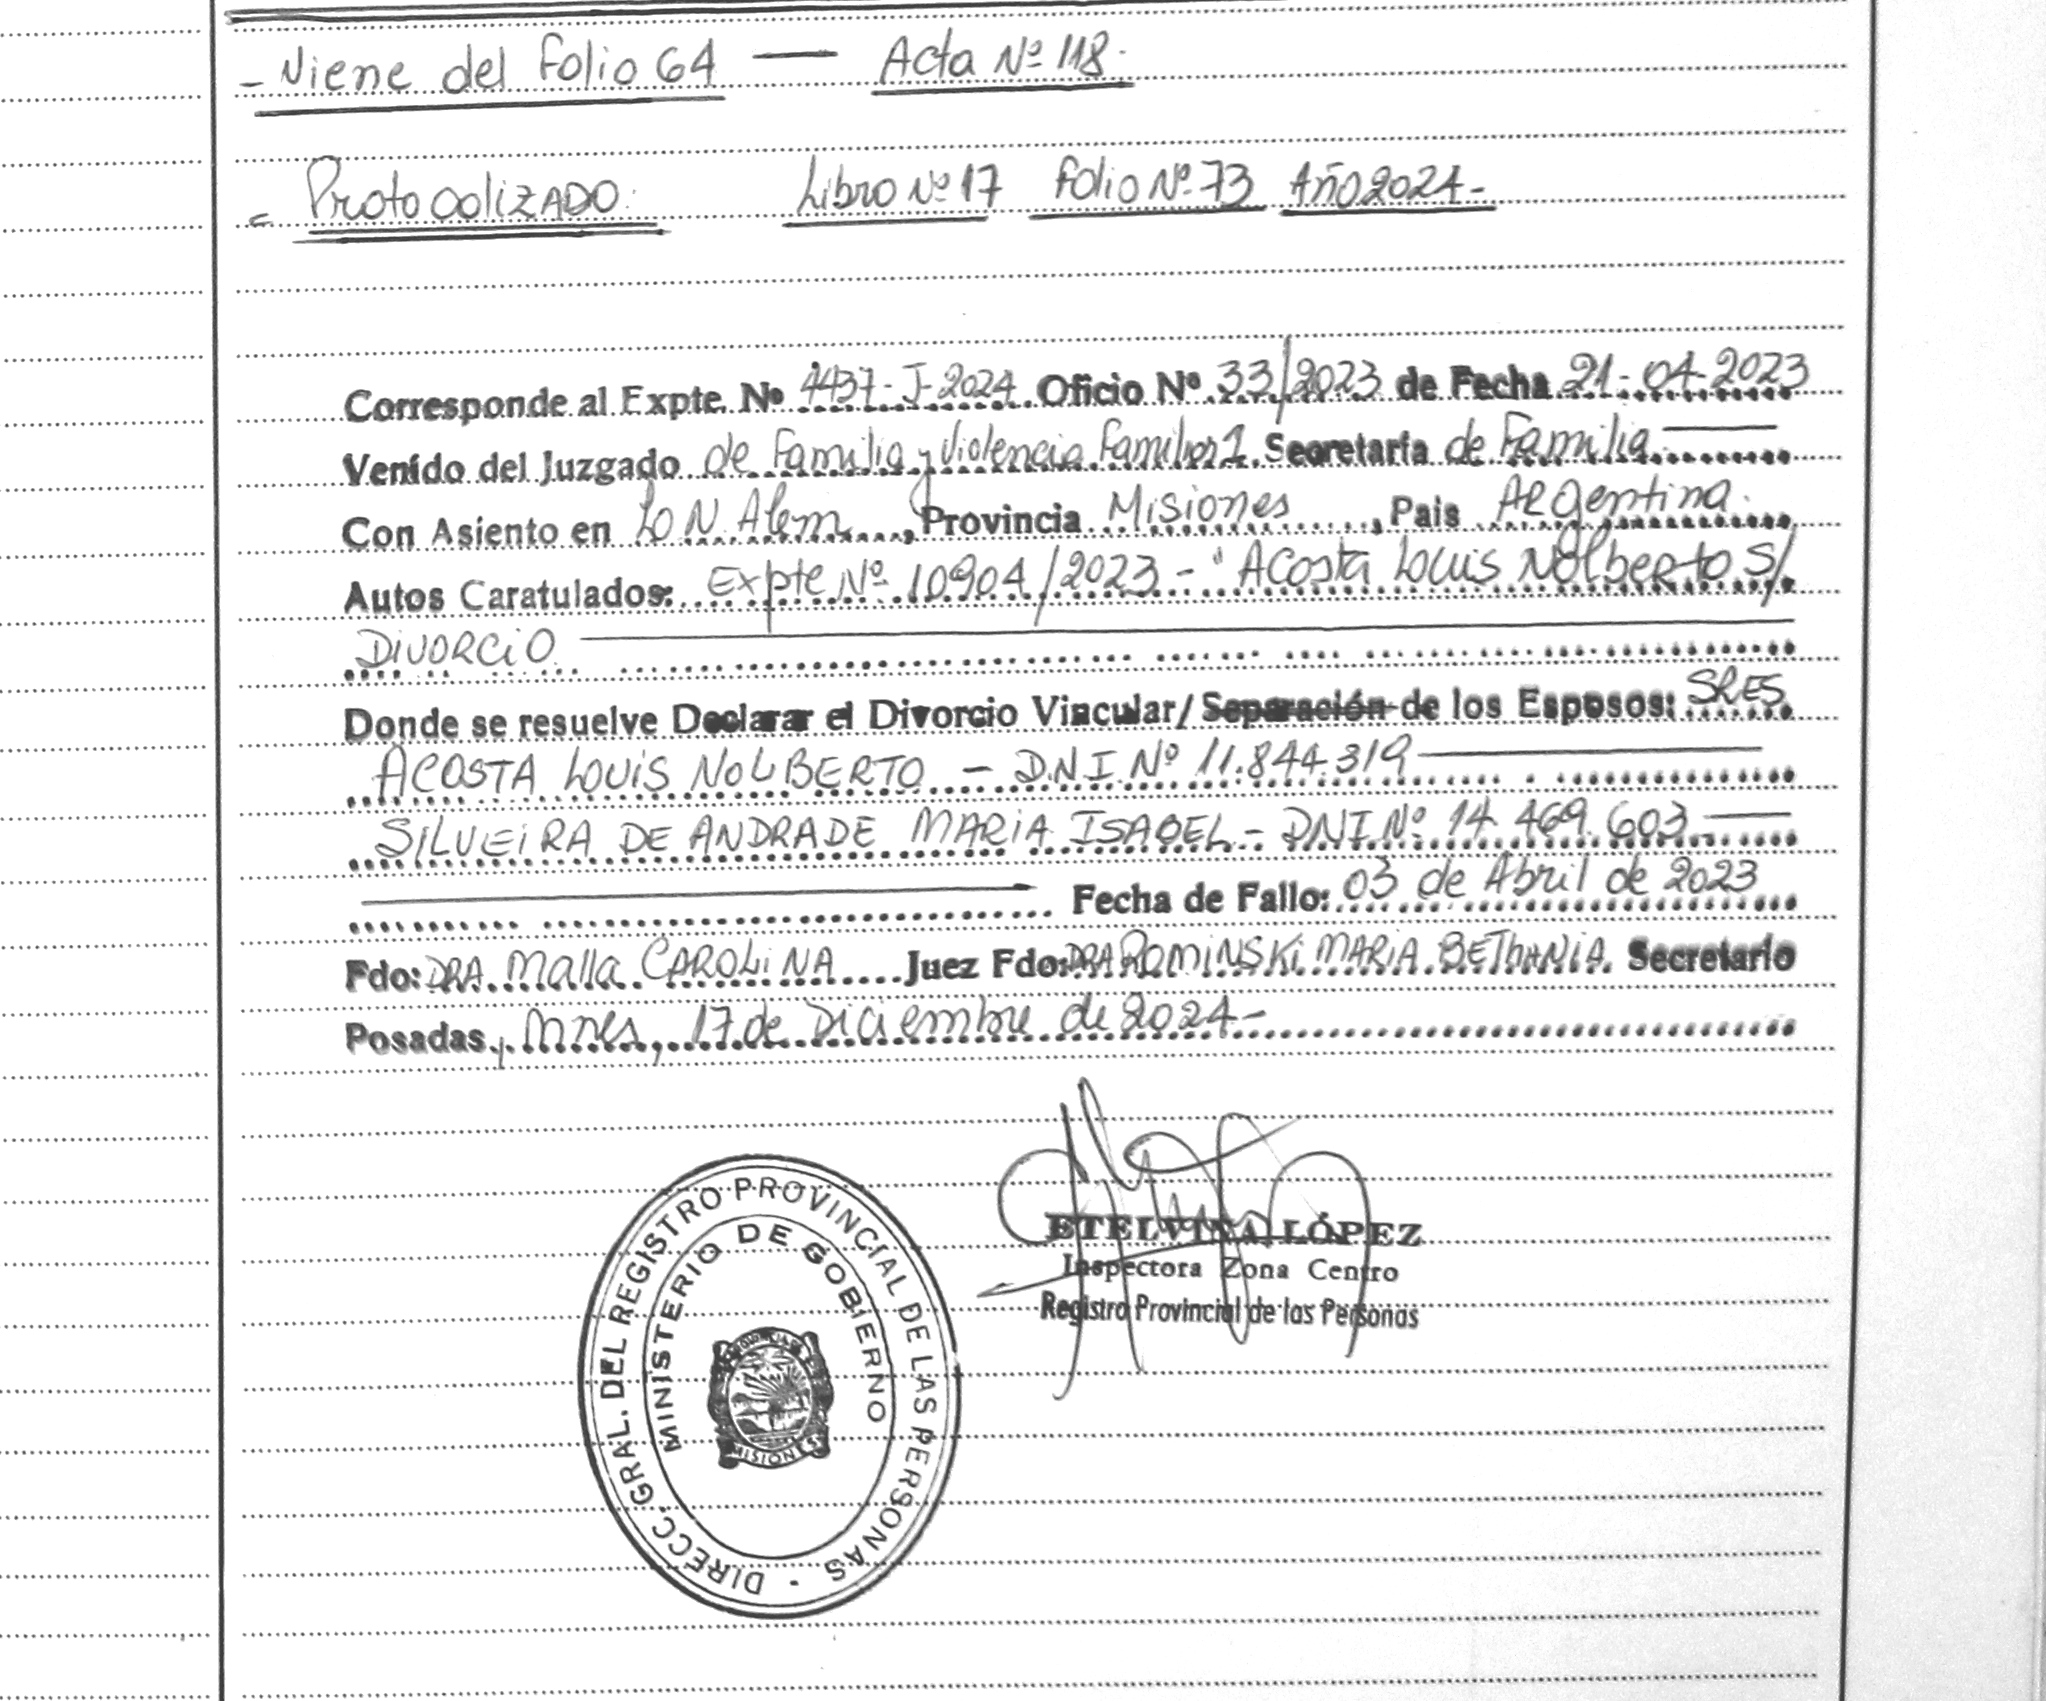 - Viene del Folio 64 — Acta Nº 118.
- Protocolizado. Libro Nº 17 Folio Nº 73 Año 2024-
Corresponde al Expte. Nº 4437-J-2024 Oficio Nº 33/2023 de Fecha 21-04-2023
Venido del Juzgado de Familia y Violencia Familiar 1 Secretaría de Familia
Con Asiento en L. N. Alem, Provincia Misiones, Pais Argentina.
Autos Caratulados: Expte Nº 10904/2023 - "Acosta Louis Nolberto S/
Divorcio
Donde se resuelve Declarar el Divorcio Vincular/ Separación de los Esposos: SRES
ACOSTA LOUIS NOLBERTO - D.N.I. Nº 11.844.319
SILVEIRA DE ANDRADE MARIA ISABEL - DNI Nº 14.469.603
Fecha de Fallo: 03 de Abril de 2023
Fdo: DRA. Malla CAROLINA Juez Fdo: DRA ROMINSKI MARIA BEThANIA. Secretario
Posadas, Mnes, 17 de Diciembre de 2024-
ETELVINA LÓPEZ
Inspectora Zona Centro
Registro Provincial de las Personas
DIRECC. GRAL. DEL REGISTRO PROVINCIAL DE LAS PERSONAS -
MINISTERIO DE GOBIERNO
MISIONES